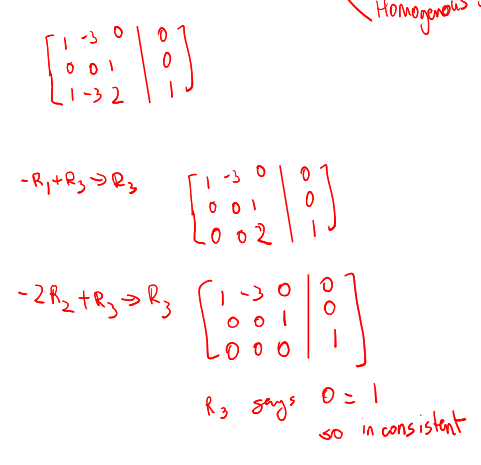 Homogenous
[ 1 -3 0 | 0 ]
[ 0 0 1 | 0 ]
[ 1 -3 2 | 1 ]
-R₁+R₃→R₃
[ 1 -3 0 | 0 ]
[ 0 0 1 | 0 ]
[ 0 0 2 | 1 ]
-2R₂+R₃→R₃
[ 1 -3 0 | 0 ]
[ 0 0 1 | 0 ]
[ 0 0 0 | 1 ]
R₃ says 0 = 1
so inconsistent